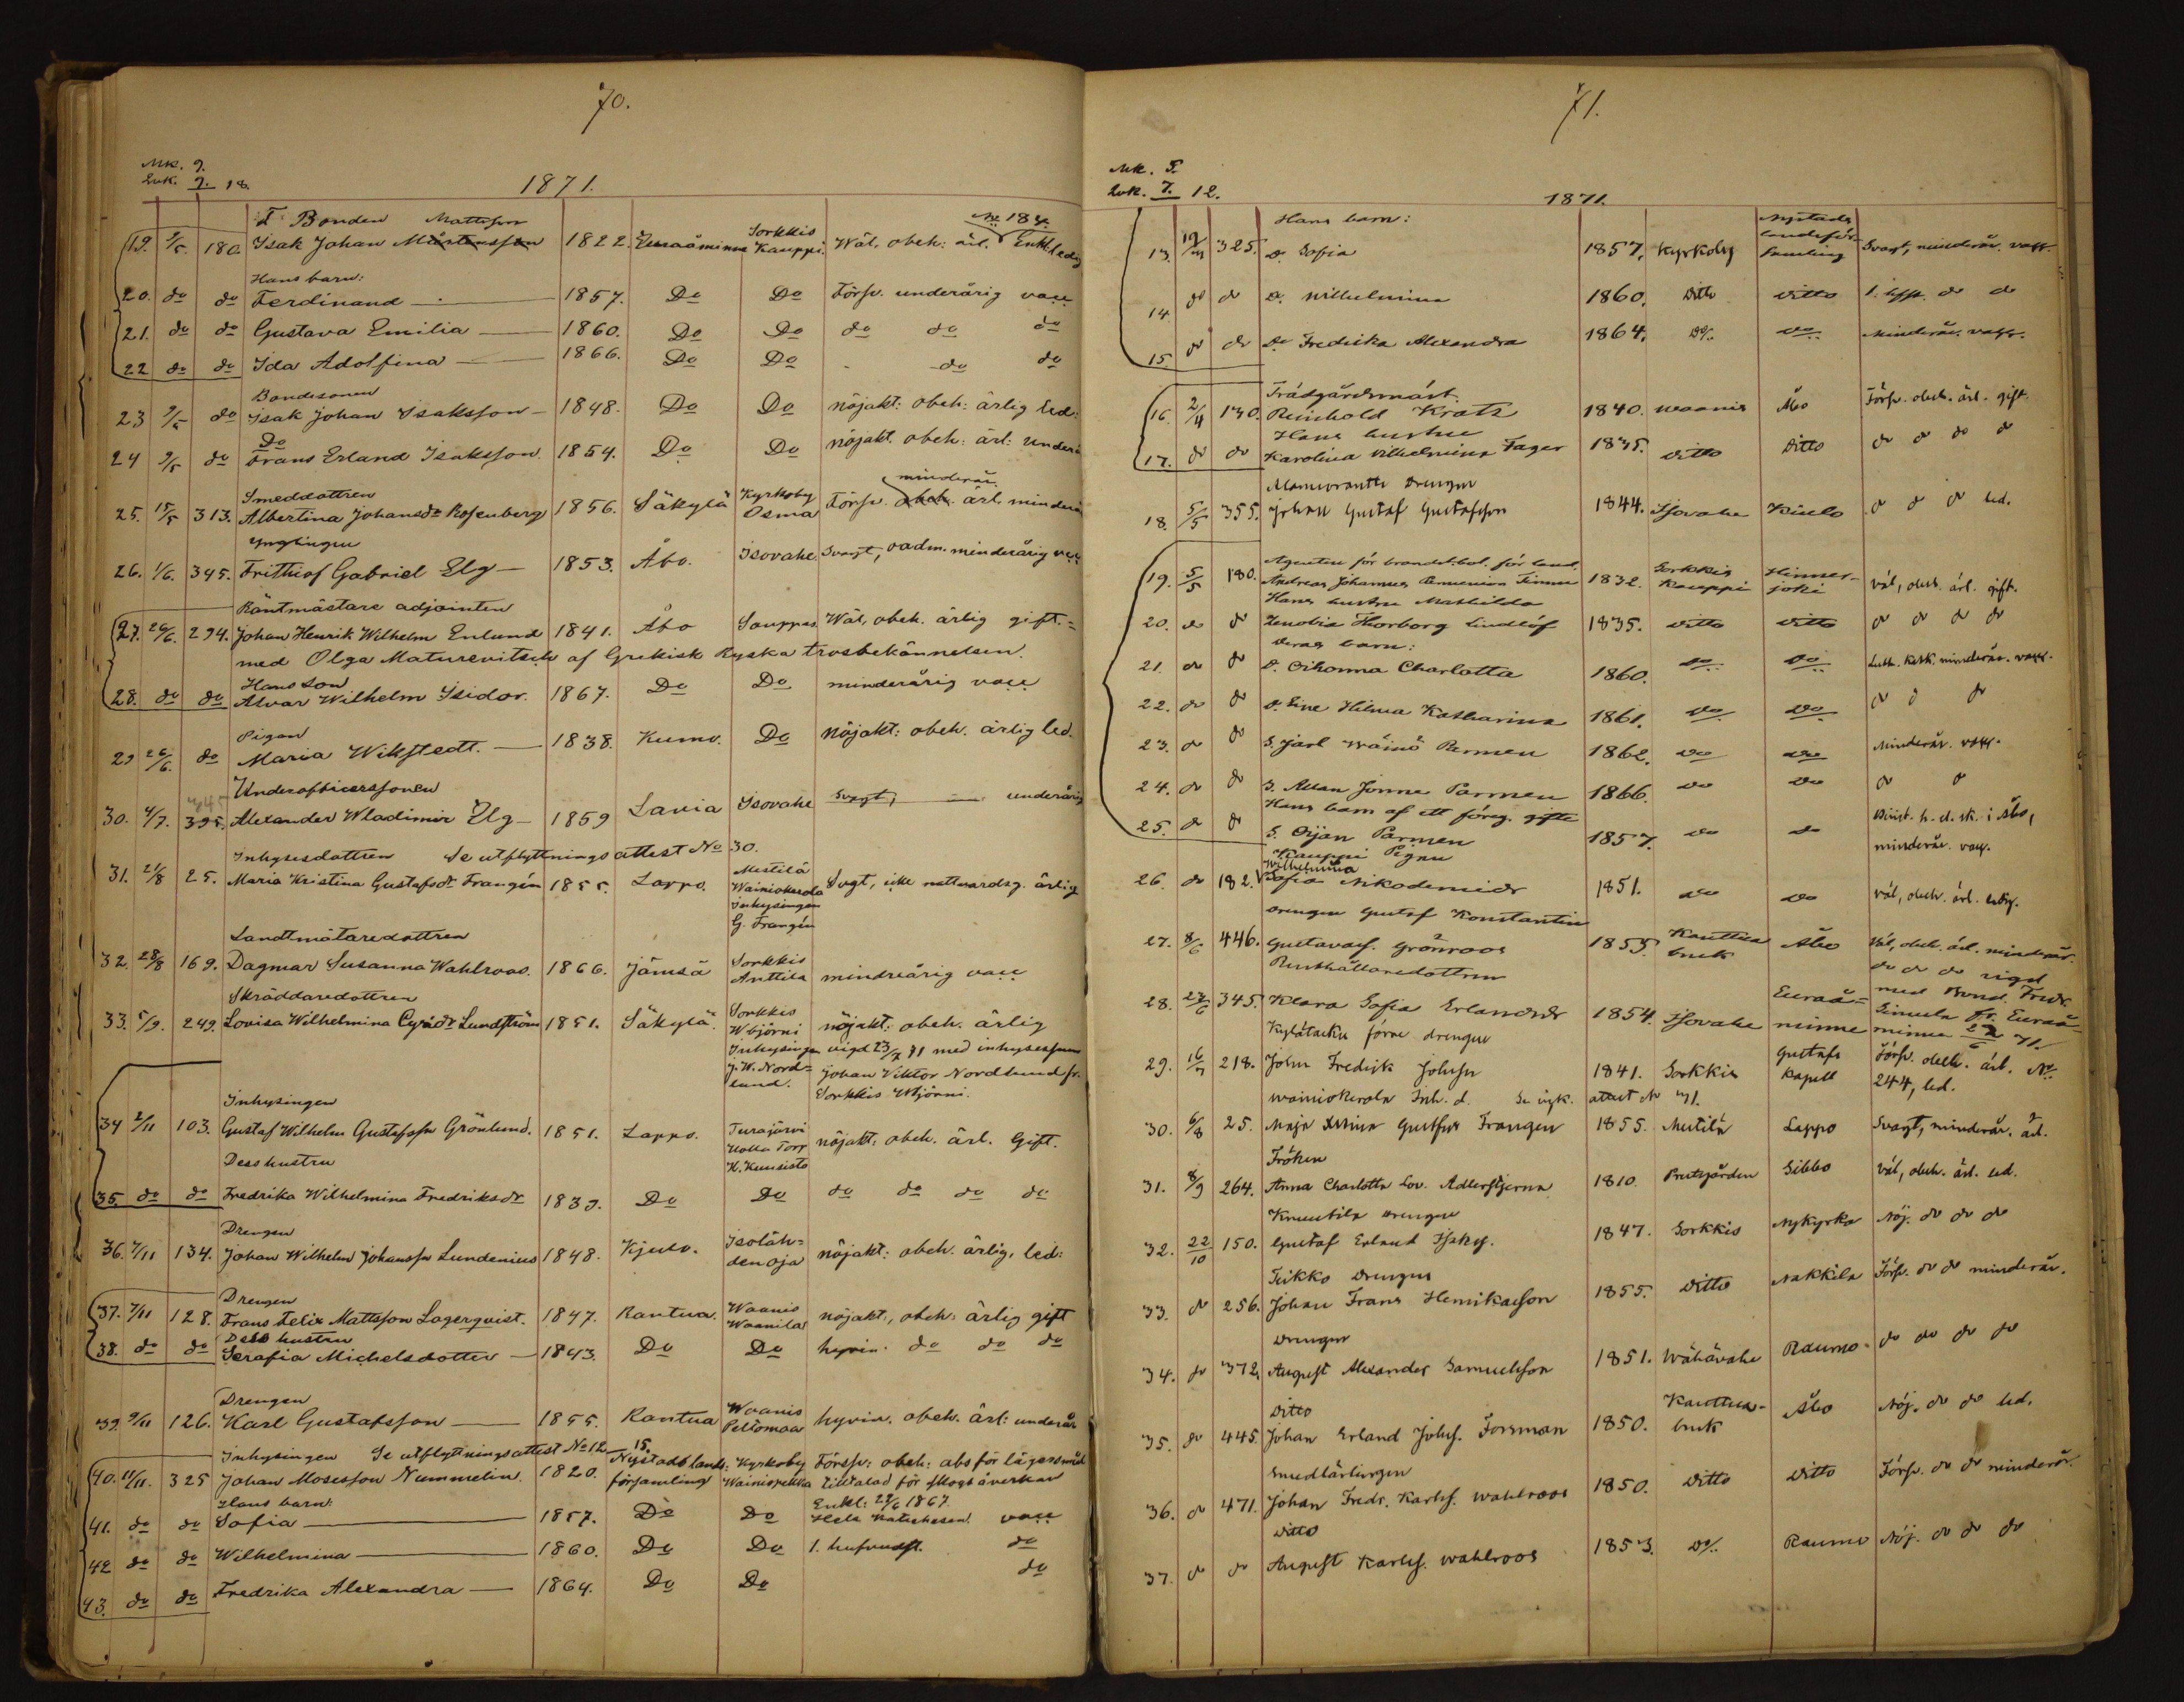 70.
Mk. 9.
Qvk. 9. 18.
1871.
T. Bonden Mattsson No 184.
19. 9/5. 180. Isak Johan Mårtensson 1822. Euraåminne Sorkkis Kauppi. Wäl, obeh: ärl. Enkl. ledig
Hans barn:
20. do do Ferdinand — 1857. Do Do Försv. underårig vacc
21. do do Gustava Emilia — 1860. Do Do do do do
22 do do Ida Adolfina — 1866. Do Do - do do
Bondesonen
23 9/5 do Isak Johan Isaksson — 1848. Do Do nöjakt: obeh: ärlig led:
Do
24 9/5 do Frans Erland Isaksson. 1854. Do Do nöjakt. obeh: ärl: underå
Smeddottren minderår.
25. 15/5 313. Albertina Johansdr Rosenberg 1856. Säkylä Kyrkoby Osma Försv. obeh. ärl. minderå
Ynglingen
26. 1/6. 345. Frithiof Gabriel Elg — 1853. Åbo. Isovahe. Svagt, oadm. minderårig vacc
Räntmästare adjointen
27. 26/6. 294. Johan Henrik Wilhelm Enlund 1841. Åbo Sauppas. Wäl, obeh. ärlig gift. =
med Olga Maturevitsch af Grekisk Ryska trosbekännelsen.
Hans son
28. do do Alvar Wilhelm Isidor. 1867. Do Do minderårig vacc
Pigan
29 26/6. do Maria Wikstedt. — 1838. Kumo. Do nöjakt: obeh. ärlig led.
Underofficerssonen
30. 4/7. 345 395. Alexander Wladimir Elg — 1859 Lavia Isovahe svagt, — underårig
Inhysesdottren Se utflyttnings attest No 30.
31. 21/8 25. Maria Kristina Gustafsdr Frangén 1855. Lappo. Mestilä Wainiokerola Inhysingen G. Frangén Svgt, icke nattvardsg. ärlig
Landtmätaredottren
32. 28/8 169. Dagmar Susanna Wahlroos. 1866. Jämsä Sorkkis Anttila mindreårig vacc
Skräddaredottren
33. 5/9. 249. Lovisa Wilhelmina Lundström 1851. Säkylä. Sorkkis Wbjörni nöjakt: obeh. ärlig
Inhysingen J. W. Nordlund. vigd 23/7 71 med inhysessonen
Johan Viktor Nordlund fr.
Sorkkis Wbjörni.
Inhysingen
34 2/11 103. Gustaf Wilhelm Gustafsson Grönlund. 1851. Lappo. Turajärvi Torp K. Kuusisto nöjakt: obeh. ärl. Gift.
Dess hustru
35. do do Fredrika Wilhelmina Fredriksdr 1839. Do Do do do do do
Drengen
36. 7/11 134. Johan Wilhelm Johansson Lundenius 1848. Kjulo. Isolähdenoja nöjakt: obeh. ärlig, led:
Drengen
37. 7/11 128. Frans Felix Mattsson Lagerqvist. 1847. Kantua. Waanis Waanila nöjakt., obeh: ärlig gift
Dess hustru
38. do do Serafia Michelsdotter — 1843. Do Do hyvin. do do do
Drengen
39. 9/11 126. Karl Gustafsson — 1855. Kantua Waanis Peltomaa hyvin. obeh. ärl: underår
Inhysingen Se utflyttnings attest No 12. 15.
40. 11/11. 325 Johan Mosesson Nummelin. 1820. Nystads lands: församling Kyrkoby Wainiopekka Försv: obeh: abs för lägersmål tilltalad för skogsåverkan
Hans barn: Enkl: 28/6 1867.
41. do do Sofia — 1857. Do Do Hela katekesen. vacc
42 do do Wilhelmina — 1860. Do Do 1. hufvudst. do
43. do do Fredrika Alexandra — 1864. Do Do do
71.
Mk. 5.
Qvk. 7. 12.
1871.
Hans barn:
13. 325. D. Sofia 1857. Kyrkoby Nystads landsförsamling Svagt, minderår. vacc.
14. do do D. Wilhelmina 1860. Ditto Ditto 1. hfst. do do
15. do do Do Fredrika Alexandra 1864. Do Do Minderår. vacc.
Trädgårdsmäst.
16. 2/4 130. Reinhold Kratz 1840. Waanis Åbo Försv. obeh. ärl. gift.
Hans hustru
17. do do Karolina Vilhelmina Fager 1835. Ditto Ditto do do do do
Drengen
18. 5/5 355. Johan Gustaf Gustafsson 1844. Isovahe Kiulo do do do led.
Agenten för brandst.bol. för land.
19. 5/5 180. Andreas Johannes 1832. Sorkkis Kauppi Hinnerjoki väl, obeh. ärl. gift.
Hans hustru Mathilda
20. do do Zenobia Thorborg Lindlöf 1835. ditto ditto do do do do
Deras barn:
21. do do D. Oihonna Charlotta 1860. Do Do Luth. kat. minderår. vacc.
22. do do D. Sine Hilma Katharina 1861. Do Do do do do
23. do do S. Jarl Wäinö Parmen 1862. Do Do Minderår. vacc.
24. do do S. Allan Jonne Parmen 1866. Do Do do do
Hans barn af ett föreg. gifte
25. do do S. Örjan Parmen 1857. Do Do h. d. sk. i Åbo, minderår. vacc.
Kauppi Pigan
26. do 182. Wilhelmina Sofia Nikodemidr 1851. Do Do väl, obeh. ärl. ledig.
Drengen Gustaf Konstantin
27. 8/6 446. Gustavsson Grönroos 1855. Kauttua bruk Åbo Väl, obeh. ärl. minderår.
Rusthållaredottren do do do vigd
28. 345. Klara Sofia Erlandsdr 1854. Isovahe Euraåminne med Bond. Fredr. Simula fr. Euraåminne 71.
Kylätasku förre drengen
29. 16/7 218. John Fredrik Johnsn 1841. Sorkkis Gustafs Kapell Försv. obeh. ärl. No 244, led.
Wainiokerola Inh. d. Se attest No 71.
30. 6/8 25. Maja Stina Gustfsdr Frangen 1855. Mestilä Lappo Svagt, minderår. ärl.
Fröken
31. 8/9 264. Anna Charlotta Lov. Adlerstjerna 1810. Prestgården Sibbo Väl, obeh. ärl. led.
Knuutila Drengen
32. 22/10 150. Gustaf Erland Isaks. 1847. Sorkkis Nykyrka Nöj. do do do
Teikko Drengen
33. do 256. Johan Frans Henrikasson 1855. Ditto Nakkila Försv. do do minderår.
Drengen
34. do 372. August Alexander Samuelsson 1851. Wähävahe Raumo do do do do
Ditto
35. do 445. Johan Erland Johns. Forsman 1850. Kauttua bruk Åbo Nöj. do do led.
Smedlärlingen
36. do 471. Johan Fredr. Karlss. Wahlroos 1850. Ditto Ditto Försv. do do minderår.
Ditto
37. do do August Karlss. Wahlroos 1853. Do Raumo Nöj. do do do